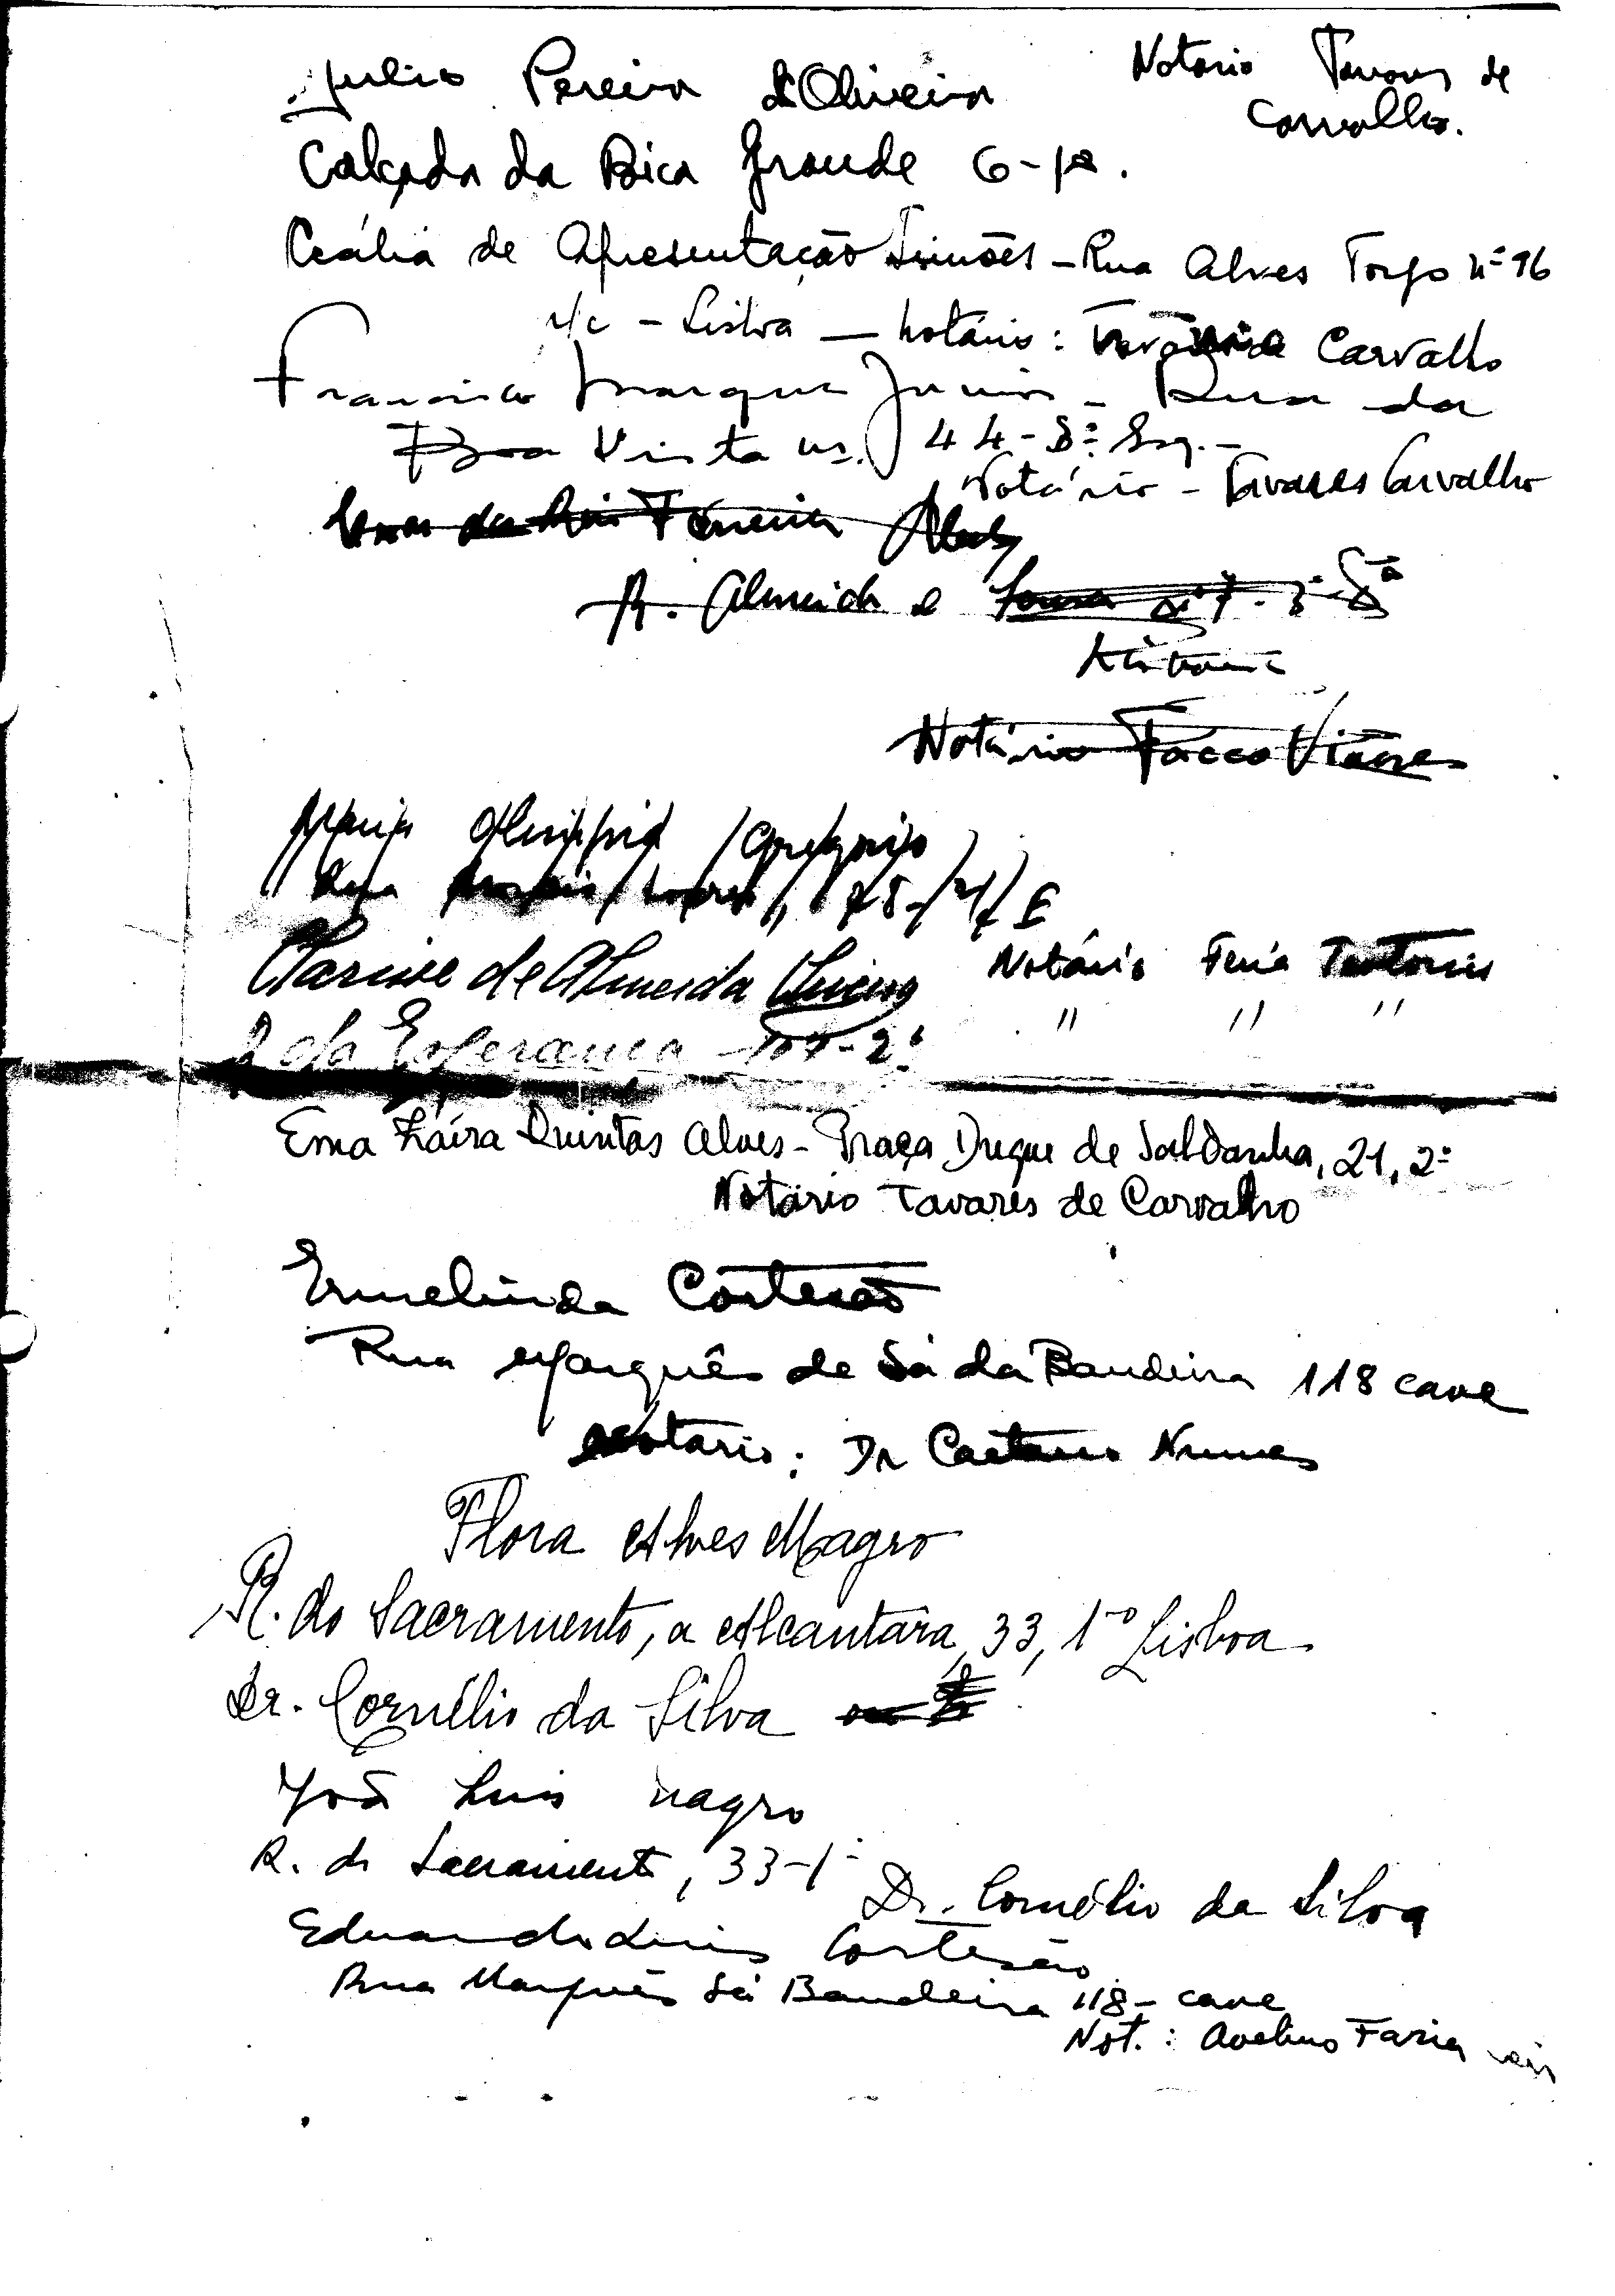 Julio Pereira d'Oliveira
Notario Tavares de
Carvalho.
Calçada da Bica Grande 6-1º.
Cecília de Apresentação Simões - Rua Alves Torgo nº 16
r/c - Lisboa - Notário: Tavares de Carvalho
Francisco Marques Junior - Rua da
Boa Vista nº 44-3º Esq. -
Notário - Tavares Carvalho
Ferreira
R. Almeida e Sousa nº 7-3º
Lisboa
Notário
Maria Olimpia Gregorio
Rua 78
Clarisse de Almeida
Notário
" " "
R da Esperança 107-2º
Ema Zaíra Quintas Alves - Praça Duque de Saldanha, 21, 2º
Notário Tavares de Carvalho
Ermelinda Cortesão
Rua Marquês de Sá da Bandeira 118 cave
Notario: Dr Caetano Nunes
Flora Alves Magro
R. do Sacramento, a Alcantara, 33, 1º Lisboa
Dr. Cornélio da Silva
João Luis Magro
R. do Sacramento, 33-1º
Dr. Cornélio da Silva
Eduardo Luis Cortesão
Rua Marquês Sá Bandeira 118 - cave
Not.: Avelino Faria